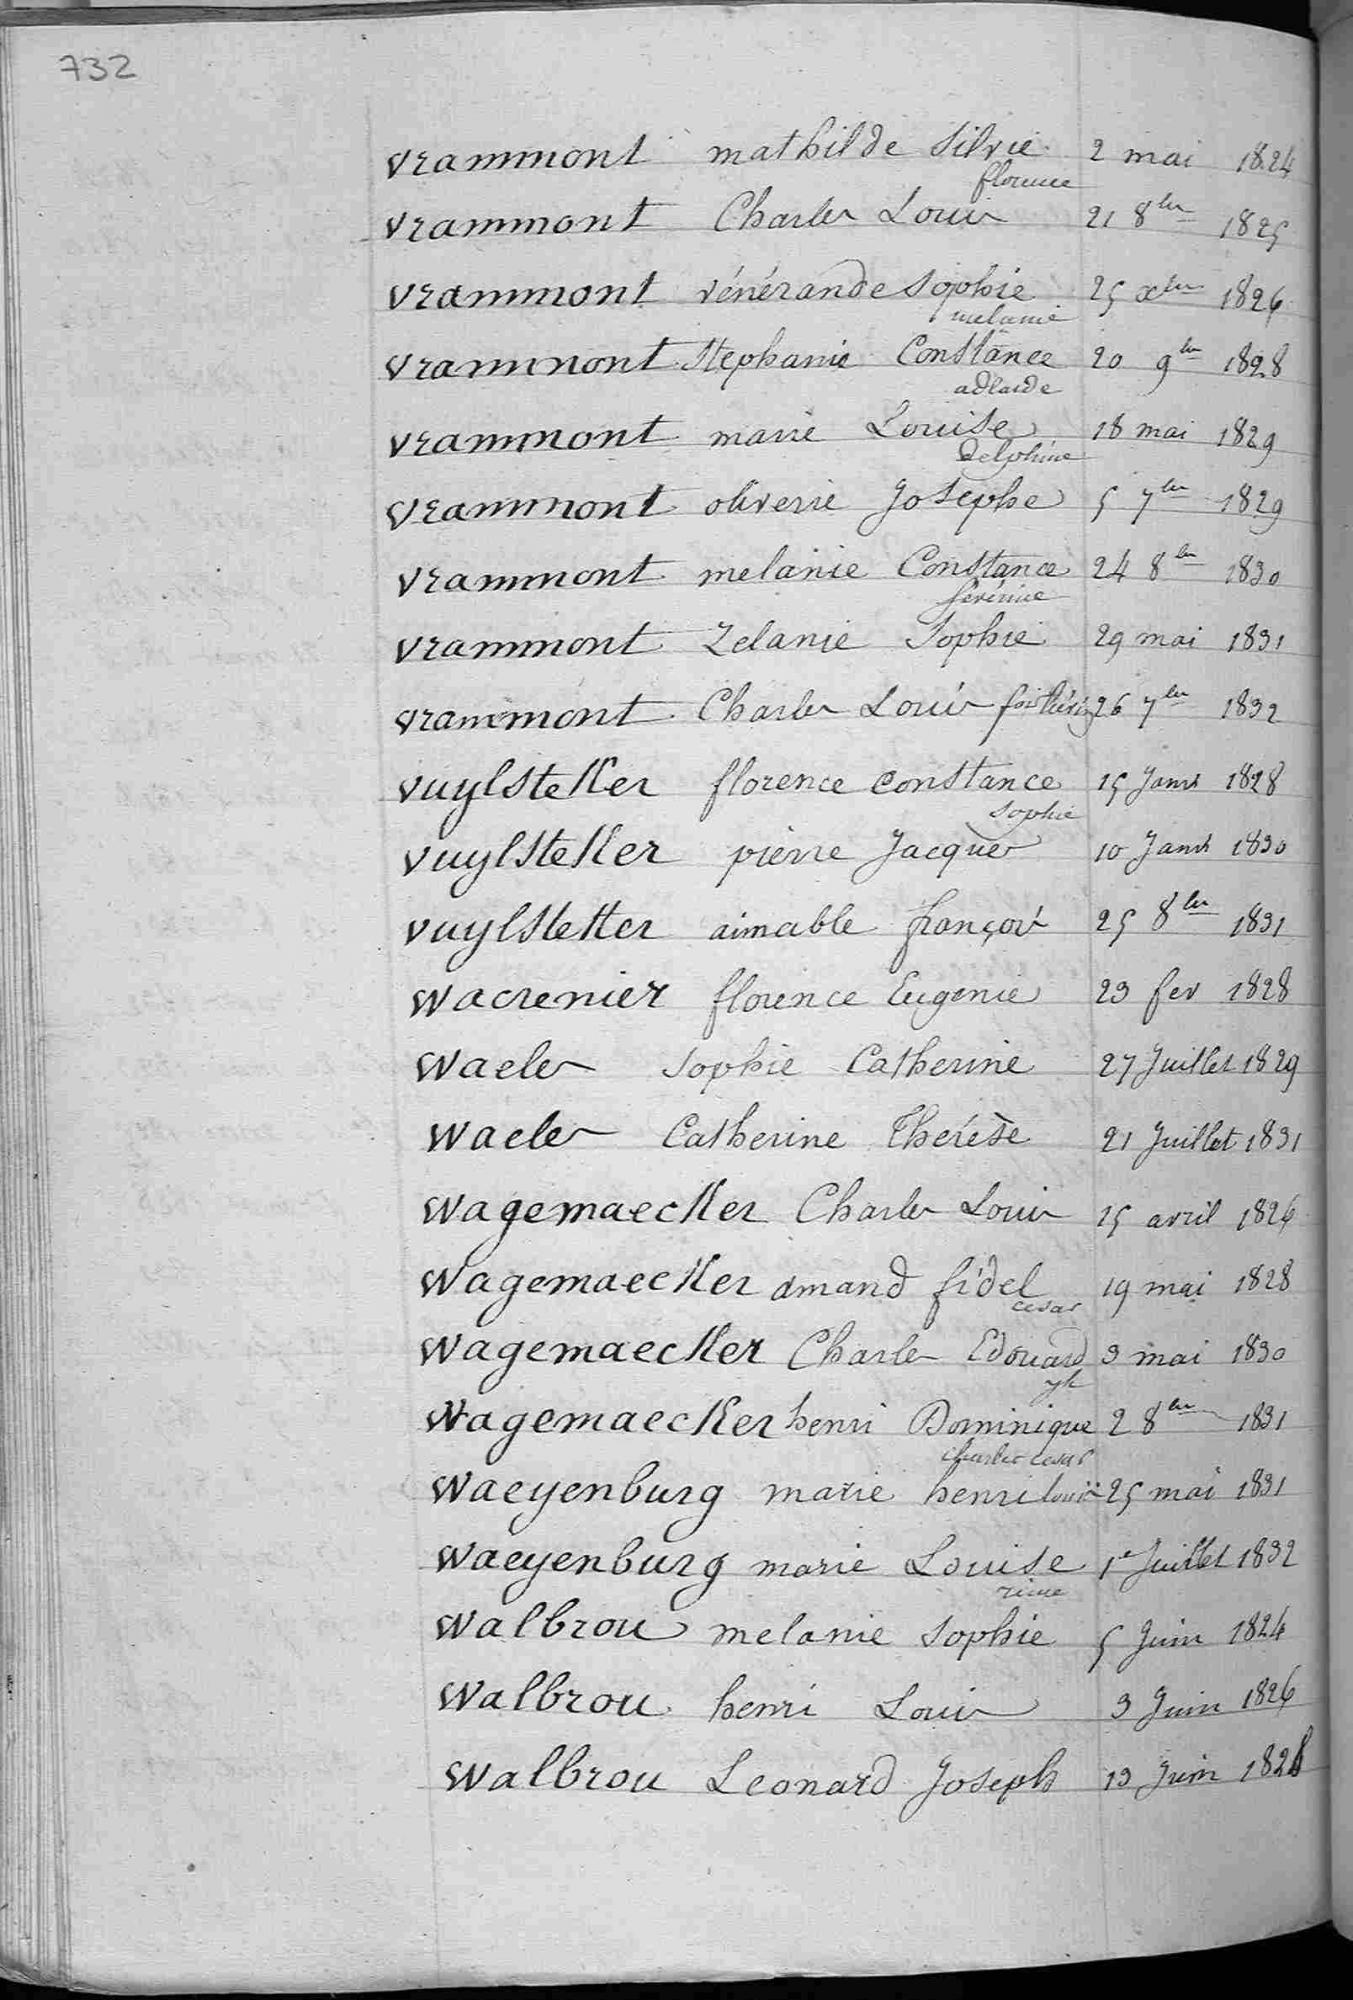 732
vrammont mathilde Silvie 2 mai 1824
florence
vrammont Charles Louis 21 8bre 1825
vrammont vénérande Sophie 25 xbre 1826
melanie
vrammont Stephanie Constance 20 9bre 1828
adlaide
vrammont marie Louise 18 mai 1829
delphine
vrammont oliverie Josephe 5 7bre 1829
vrammont melanie Constance 24 8bre 1830
vrammont Zelanie Sophie 29 mai 1831
vrammont Charles Louis 26 7bre 1832
vuylsteker florence constance 15 Janv 1828
Sophie
vuylsteker pierre Jacques 10 Janv 1830
vuylsteker aimable françois 25 8bre 1831
wacrenier florence Eugenie 23 fev 1828
waeles Sophie Catherine 27 Juillet 1829
waeles Catherine Thérèse 21 Juillet 1831
wagemaecker Charles Louis 15 avril 1826
wagemaecker amand fidel 19 mai 1828
cesar
wagemaecker Charles Edouard 3 mai 1830
wagemaecker henri Dominique 2 8bre 1831
charles cesar
waeyenburg marie henri louis 25 mai 1831
waeyenburg marie Louise 1er Juillet 1832
walbrou melanie Sophie 5 Juin 1824
walbrou henri Louis 3 Juin 1826
walbrou Leonard Joseph 13 Juin 1828